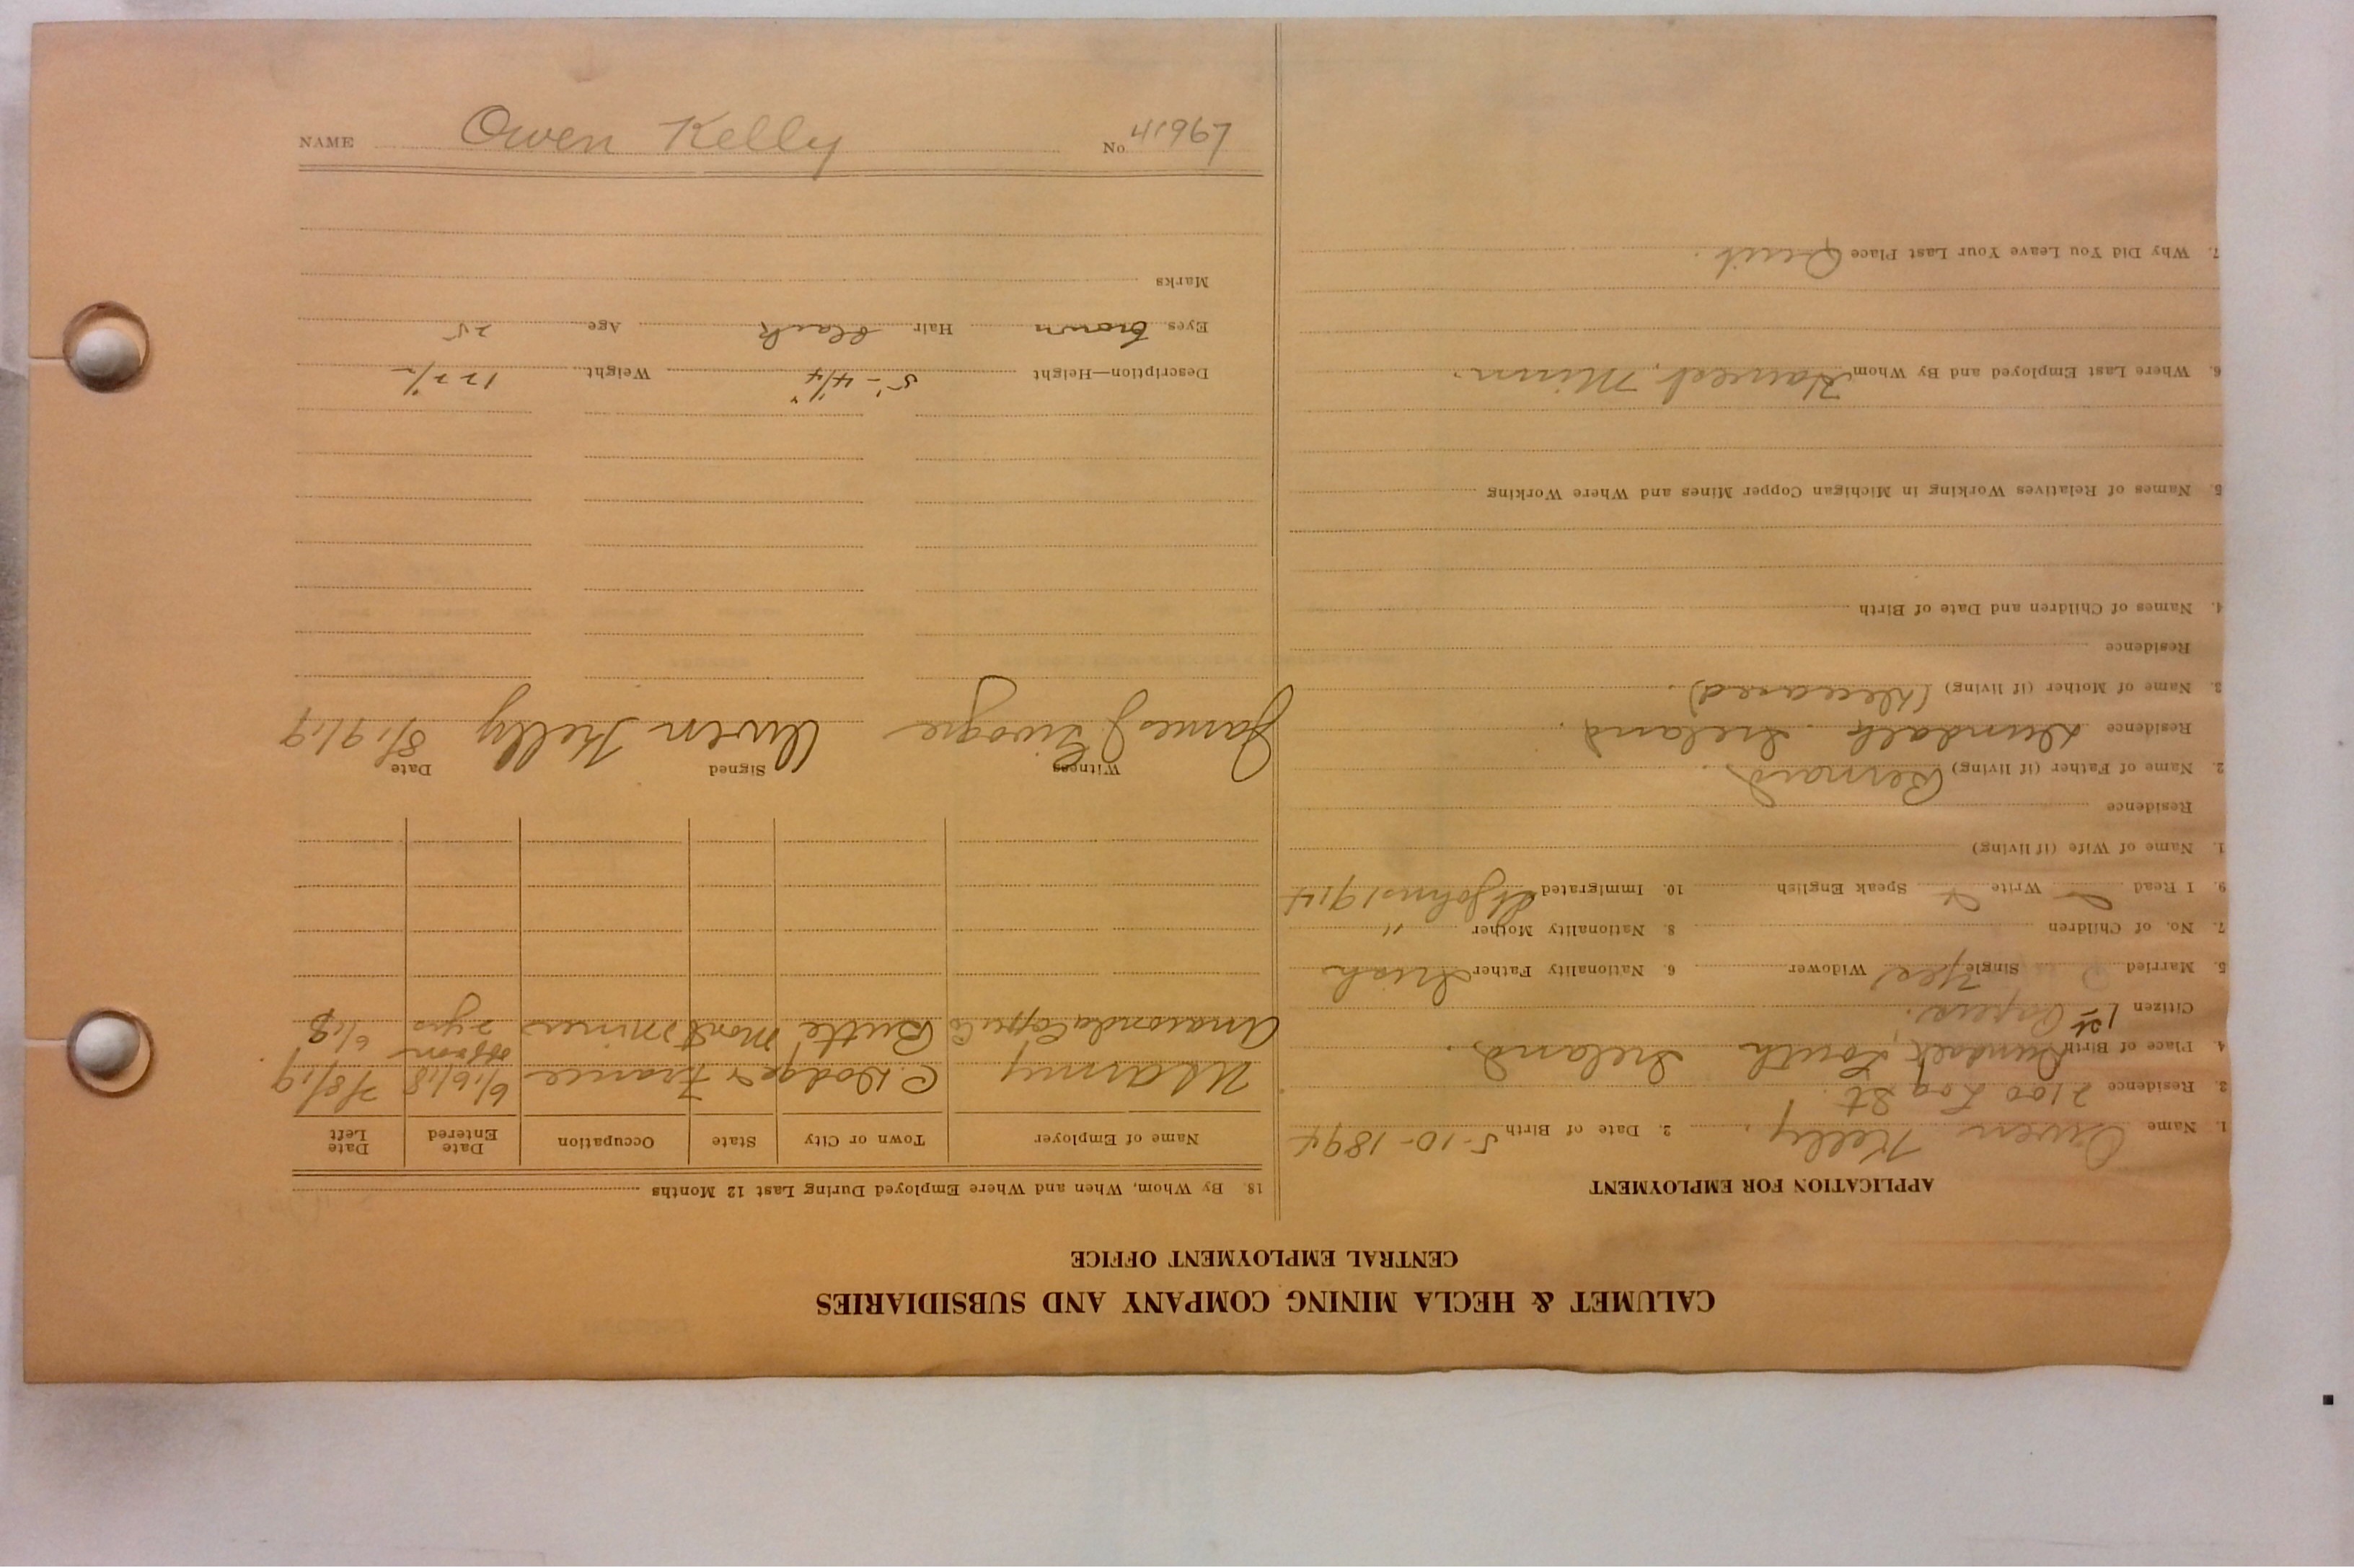 CALUMET & HECLA MINING COMPANY AND SUBSIDIARIES
CENTRAL EMPLOYMENT OFFICE
APPLICATION FOR EMPLOYMENT
1. Name Owen Kelly. 2. Date of Birth 5-10-1894
3. Residence 2100 Log St.
4. Place of Birth Dundalk, Louth Ireland.
Citizen 1st Papers.
5. Married Single Yes Widower 6. Nationality Father Irish
7. No. of Children 8. Nationality Mother "
9. I Read Write Speak English 10. Immigrated St Johns 1914
1. Name of Wife (if living)
Residence
2. Name of Father (if living) Bernard.
Residence Dundalk. Ireland.
3. Name of Mother (if living) (deceased).
Residence
4. Names of Children and Date of Birth
5. Names of Relatives Working in Michigan Copper Mines and Where Working
6. Where Last Employed and By Whom Minn.
7. Why Did You Leave Your Last Place Quit.
18. By Whom, When and Where Employed During Last 12 Months
Name of Employer Town or City State Occupation Date Entered Date Left
US Army C. Dodge & France 6/16/18 7/8/19
Anaconda Copper Co Butte Mont Miner 2 yrs off & on 6/18
Witness Signed Date
James J. Owen Kelly 8/19/19
Description—Height 5'-4 1/4" Weight 122 1/2
Eyes brown Hair black Age 25
Marks
NAME Owen Kelly No. 41967